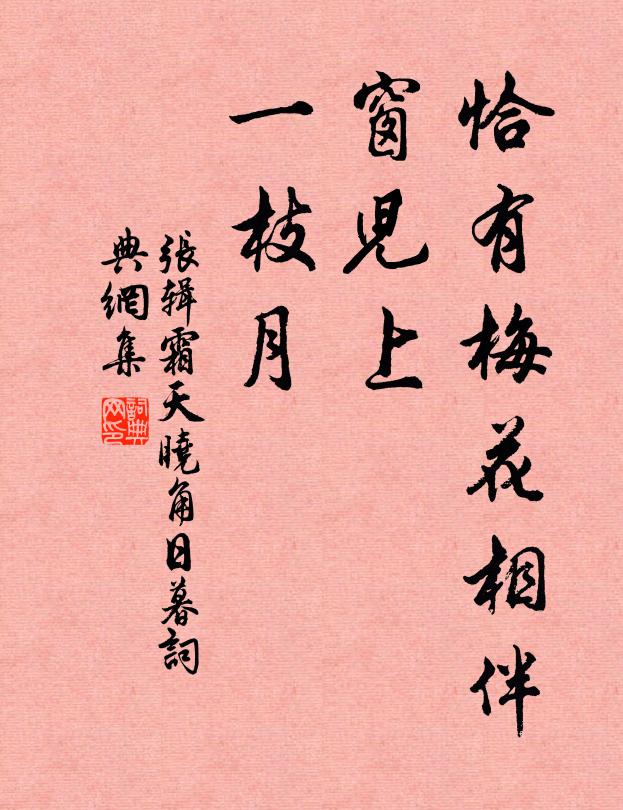 恰有梅花相伴
窗兒上
一枝月
張辑霜天曉角日暮詞
典網集
詞典
网印